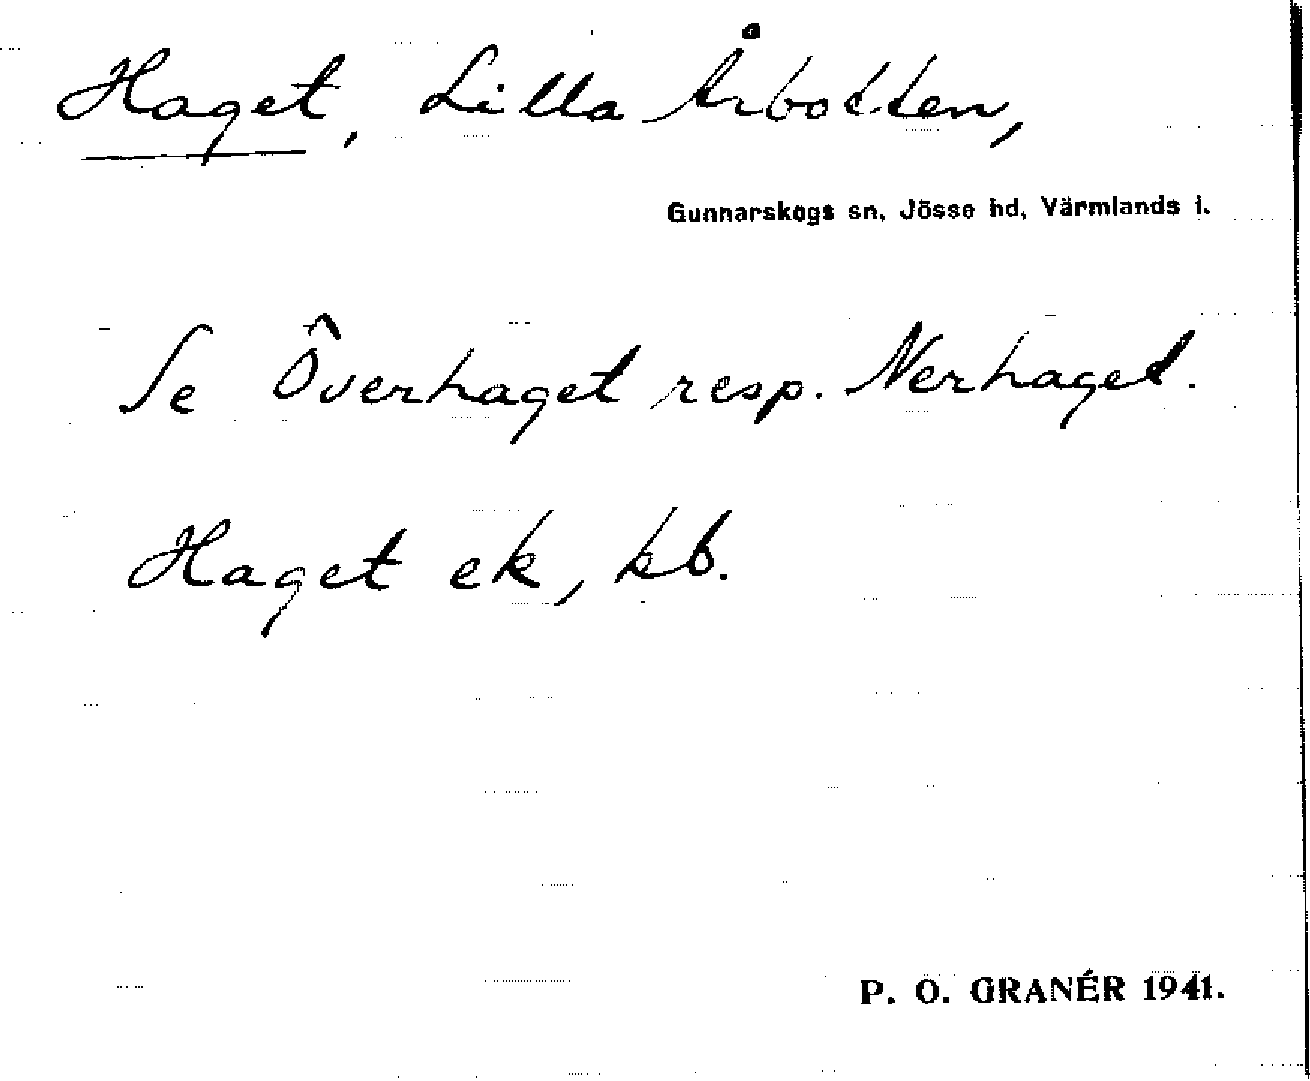 Haget, Lilla Årbotten,
Gunnarskogs sn, Jösse hd, Värmlands l.
Se Överhaget resp. Nerhaget.
Haget ek, kb.
P. O. GRANÉR 1941.